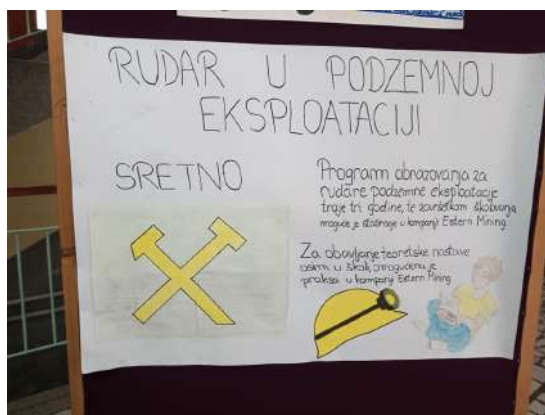 RUDAR U PODZEMNOJ
EKSPLOATACIJI
SRETNO
Program obrazovanja za
rudare podzemne eksploatacije
traje tri godine, te završetkom školovanja
moguće je stažiranje u kompaniji Estern Mining
Za obavljanje teoretske nastave
osim u školi, omogućena je
praksa u kompaniji Estern Mining